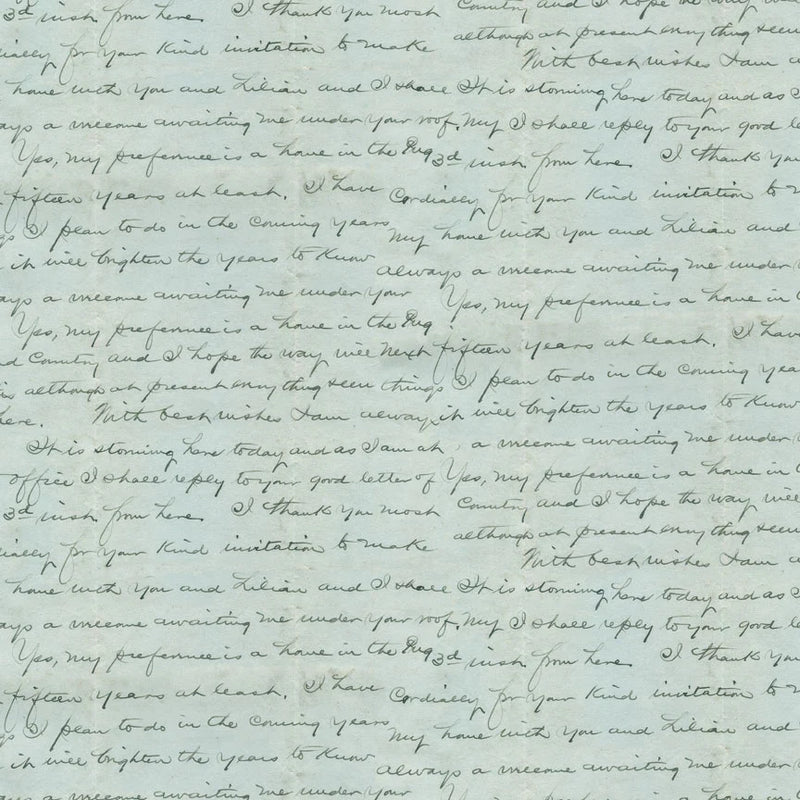 3d inst. from here. I thank you most Country and I hope the way
cordially for your kind invitation to make although at present everything seem
With best wishes I am
home with you and Lilian and I shall It is storming here today and as I
always a welcome awaiting me under your roof. my I shall reply to your good
Yes, my preference is a home in the 3d inst. from here. I thank you
fifteen years at least. I have cordially for your kind invitation to
I plan to do in the coming years my home with you and Lilian and
it will brighten the years to know always a welcome awaiting me under
always a welcome awaiting me under your Yes, my preference is a home in
Yes, my preference is a home in the
and Country and I hope the way will next fifteen years at least. I have
although at present everything seem things I plan to do in the coming
here. With best wishes I am always it will brighten the years to know
It is storming here today and as I am at a welcome awaiting me under
office I shall reply to your good letter of Yes, my preference is a home in
3d inst. from here. I thank you most Country and I hope the way will
cordially for your kind invitation to make although at present everything seem
With best wishes I am
home with you and Lilian and I shall It is storming here today and as
always a welcome awaiting me under your roof. my I shall reply to your good
Yes, my preference is a home in the 3d inst. from here. I thank you
fifteen years at least. I have cordially for your kind invitation to
I plan to do in the coming years my home with you and Lilian and
it will brighten the years to know always a welcome awaiting me under
always a welcome awaiting me under your Yes, my preference is a home in